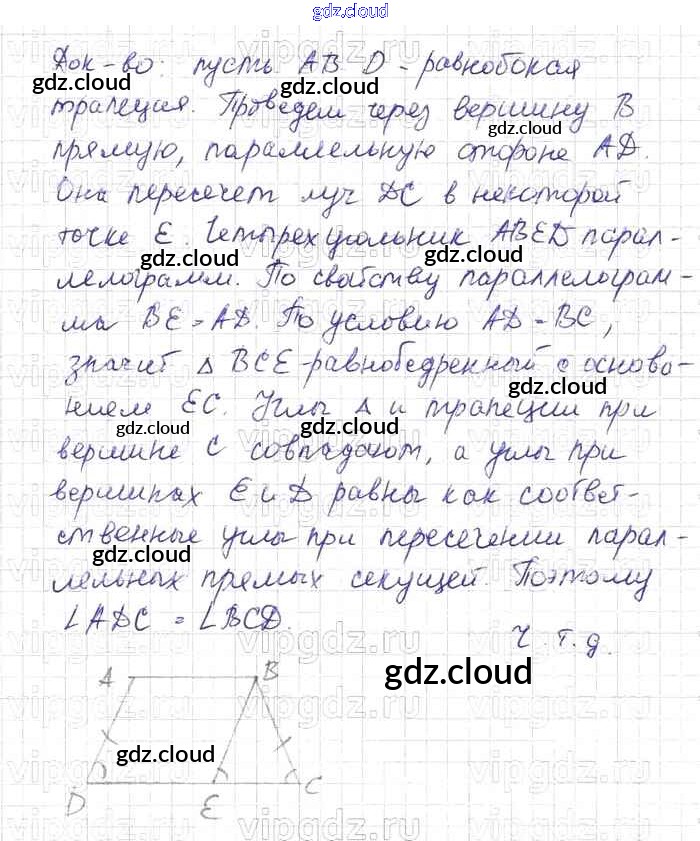 gdz.cloud
Док-во: пусть AB D - равнобокая
трапеция. Проведем через вершину B
прямую, параллельную стороне AD.
Она пересечет луч DC в некоторой
точке E. Четырехугольник ABED парал-
лелограмм. По свойству параллелограм-
ма BE = AD. По условию AD = BC,
значит Δ BCE - равнобедренный с основа-
нием EC. Углы Δ и трапеции при
вершине C совпадают, а углы при
вершинах E и D равны как соответ-
ственные углы при пересечении парал-
лельных прямых секущей. Поэтому
∠ADC = ∠BCD.
Ч. т. д.
A B
D E C
gdz.cloud
vipgdz.ru